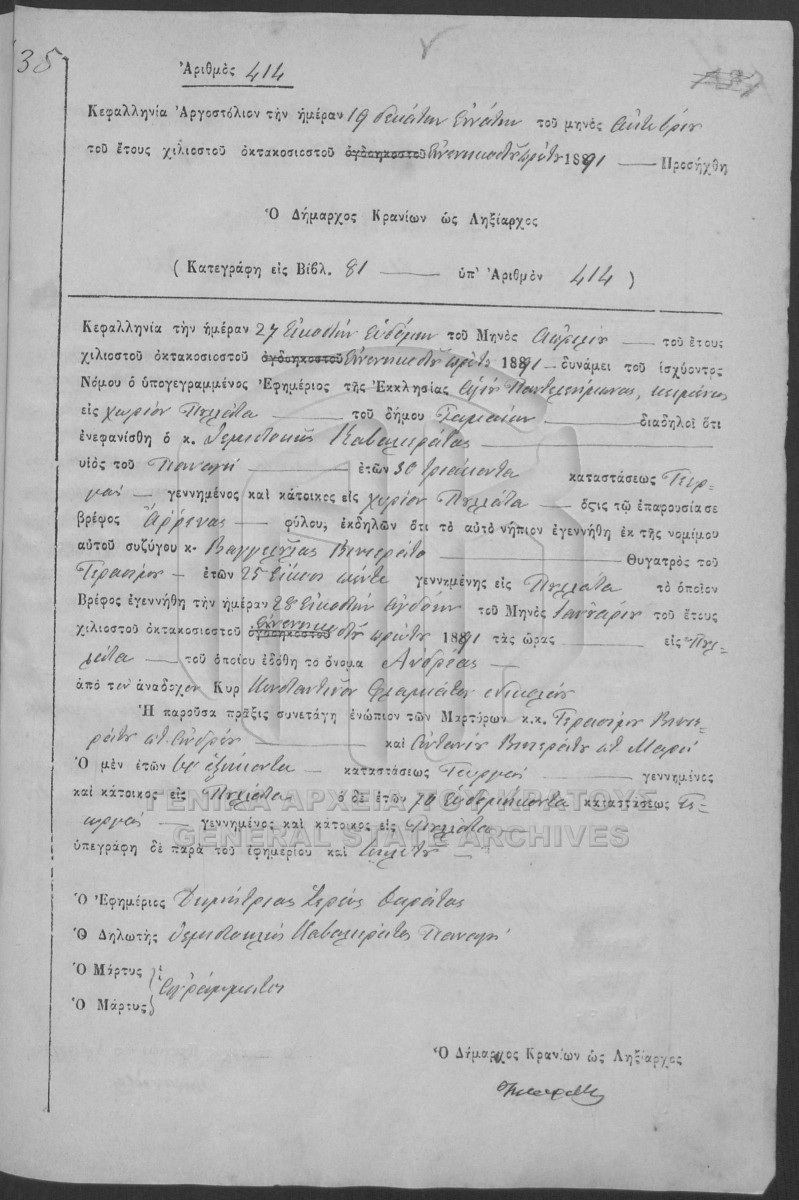 35
Ἀριθμὸς 414
Κεφαλληνία Ἀργοστόλιον τὴν ἡμέραν 19 δεκάτην ἐννάτην τοῦ μηνὸς
τοῦ ἔτους χιλιοστοῦ ὀκτακοσιοστοῦ ὀγδοηκοστοῦ ἐννενηκοστοῦ πρώτου 1891 — Προσήχθη
Ὁ Δήμαρχος Κρανίων ὡς Ληξίαρχος
( Κατεγράφη εἰς Βιβλ. 81 — ὑπ' Ἀριθμὸν 414 )
Κεφαλληνία τὴν ἡμέραν 27 εἰκοστὴν ἑβδόμην τοῦ Μηνὸς Ἀπριλίου — τοῦ ἔτους
χιλιοστοῦ ὀκτακοσιοστοῦ ὀγδοηκοστοῦ ἐννενηκοστοῦ πρώτου 1891 — δυνάμει τοῦ ἰσχύοντος
Νόμου ὁ ὑπογεγραμμένος Ἐφημέριος τῆς Ἐκκλησίας Ἁγίου Παντελεήμονος, κειμένης
εἰς χωρίον Πυλάτα — τοῦ δήμου — διαδηλοῖ ὅτι
ἐνεφανίσθη ὁ κ. Θεμιστοκλῆς Καβαλιεράτος —
υἱὸς τοῦ Παναγῆ — ἐτῶν 30 τριάκοντα καταστάσεως Γεωρ-
γός — γεννημένος καὶ κάτοικος εἰς χωρίον Πυλάτα — ὅςτις τῷ ἐπαρουσίασε
βρέφος Ἄρρενος — φύλου, ἐκδηλῶν ὅτι τὸ αὐτὸ νήπιον ἐγεννήθη ἐκ τῆς νομίμου
αὐτοῦ συζύγου κ. Βαγγελιστίας — Θυγατρὸς τοῦ
Γερασίμου — ἐτῶν 25 εἴκοσι πέντε γεννημένης εἰς Πυλάτα τὸ ὁποῖον
Βρέφος ἐγεννήθη τὴν ἡμέραν 28 εἰκοστὴν ὀγδόην τοῦ Μηνὸς Ἰαννουαρίου τοῦ ἔτους
χιλιοστοῦ ὀκτακοσιοστοῦ ὀγδοηκοστοῦ ἐννενηκοστοῦ πρώτου 1891 τὰς ὥρας — εἰς Πυλ-
λάτα — τοῦ ὁποίου ἐδόθη τὸ ὄνομα Ἀνδρέας —
ἀπὸ τὸν ἀνάδοχον Κυρ Κωνσταντῖνον
Ἡ παροῦσα πρᾶξις συνετάγη ἐνώπιον τῶν Μαρτύρων κ.κ. Γερασίμου
— καὶ Ἀντωνίου
Ὁ μὲν ἐτῶν ἑξήκοντα — καταστάσεως Γεωργός — γεννημένος
καὶ κάτοικος εἰς Πυλάτα ὁ δὲ ἐτῶν 70 ἑβδομήκοντα καταστάσεως Γε-
ωργός — γεννημένος καὶ κάτοικος εἰς Πυλάτα —
ὑπεγράφη δὲ παρὰ τοῦ ἐφημερίου καὶ δηλωτοῦ —
ΓΕΝΙΚΑ ΑΡΧΕΙΑ ΤΟΥ ΚΡΑΤΟΥΣ
GENERAL STATE ARCHIVES
Ὁ Ἐφημέριος Δημήτριος Ἱερεὺς
Ὁ Δηλωτὴς Θεμιστοκλῆς Καβαλιεράτος Παναγῆ
Ὁ Μάρτυς
Ἀγράμματοι
Ὁ Μάρτυς
Ὁ Δήμαρχος Κρανίων ὡς Ληξίαρχος